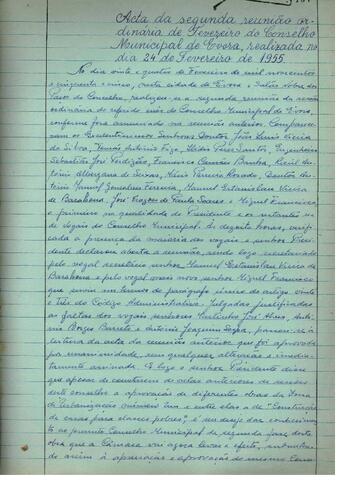 Acta da segunda reunião or-
dinaria de Fevereiro do Conselho
Municipal de Evora, realizada no
dia 24 de Fevereiro de 1955
No dia vinte e quatro de Fevereiro de mil novecentos
e cinquenta e cinco, nesta cidade de Evora e Salão nobre dos
Paços do Concelho, realizou-se a segunda reunião da sessão
ordinaria do referido mês do Conselho Municipal de Evora,
conforme fora anunciado na reunião anterior. Compareceram
os Excelentissimos Senhores Doutor João Luis Vieira
da Silva, Tomás Antonio Fiza, Engenheiro
Sebastião José Perdigão, Francisco Barba, Raúl An-
tónio de Sousa, Mário Pereira Rosado, Doutor An-
tónio Manuel Gonçalves Ferreira, Manuel Estanislau Vieira
de Barahona, José de Paula Soares e Miguel Francisco,
o primeiro na qualidade de Presidente e os restantes na
de vogais do Conselho Municipal. Ás dezoito horas, verifi-
cada a presença da maioria dos vogais o senhor Presi-
dente declarou aberta a reunião, sendo logo secretariado
pelo vogal senhor Manuel Estanislau Vieira de
Barahona e pelo vogal mais novo senhor Miguel Francisco
nos termos do parágrafo único do artigo vinte
e três do Código Administrativo. Julgadas justificadas
as faltas dos vogais senhores José Alves, Antó-
nio Borges Barreto e António Joaquim, passou-se á
leitura da acta da sessão anterior que foi aprovada
por unanimidade, sem qualquer alteração e imedia-
tamente assinada. E logo o senhor Presidente disse
que apesar de constarem de actas anteriores de
deste conselho a aprovação de diferentes obras da Zona
de Urbanização número um e entre elas a de "Construção
de casas para classes pobres" é seu desejo dar conhecimento
ao presente Conselho Municipal da segunda fase desta
obra que a Câmara vai agora levar a efeito, submeten-
do assim á apreciação e aprovação do mesmo Conse-